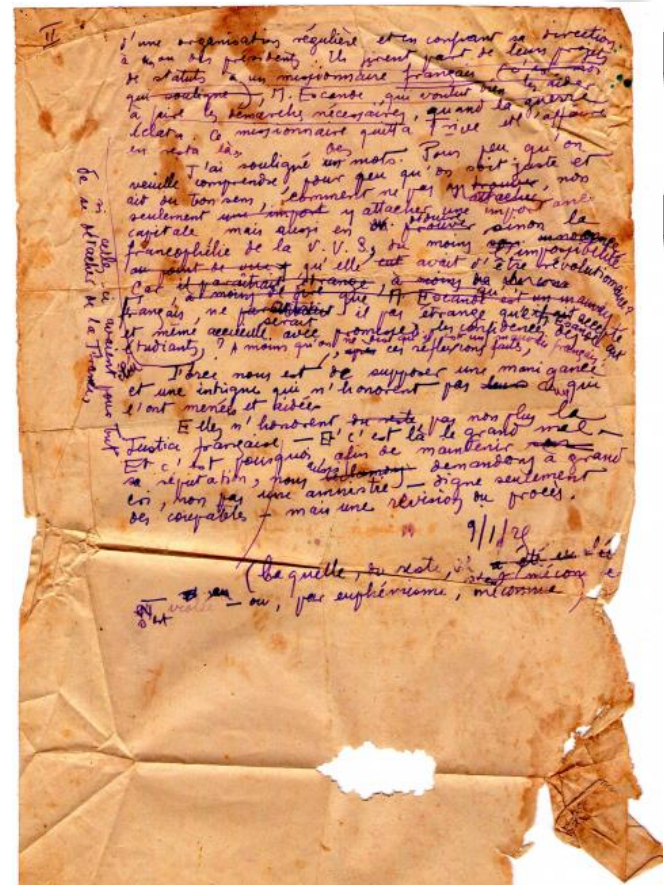 II
d'une organisation régulière et en confiant sa direction
à un des présidents. Ils firent part de leurs projets
de statuts à un missionnaire français
qui souligne), M. Escande qui voulut bien les aider
à faire les démarches nécessaires, quand la guerre
éclata. Ce missionnaire quitta et l'affaire
en resta là.
J'ai souligné des mots. Pour peu qu'on
veuille comprendre, pour peu qu'on soit juste et
ait du bon sens, comment ne pas y trouver, nos
seulement une import y attacher une importance
capitale mais aussi en prouver sinon la
francophilie de la V.V.S, du moins l'impossibilité
au point de vue qu'elle eut avait d'être révolutionnaire?
Car il paraitrait étrange, à moins
à moins que M Escande est un mauvais
français, ne serait il pas étrange qu'il eut accepté
et même accueilli avec promesses les confidences des
étudiants, ? A moins qu'on ne dise qu'il est un mauvais français.
ces réflexions faites,
Force nous est de supposer une manigance
et une intrigue qui n'honorent pas ceux qui
l'ont menées et aidée
Elles n'honorent du reste pas non plus la
Justice française — Et c'est là le grand mal —
Et c'est pourquoi, afin de maintenir
sa réputation, nous réclamons demandons à grand
cri, non pas une amnistie — digne seulement
des coupables — mais une révision du procès.
9/1/26
(laquelle, du reste, a été
est violée — ou, par euphémisme, méconnue)
si celle-ci avaient pour but
de se détacher de la France,